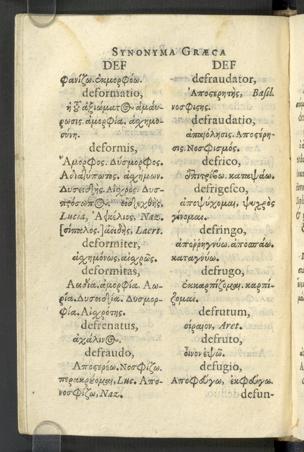 SYNONYMA GRÆCA
DEF
φανίζω. ἐκμορφόω.
deformatio,
ἡ ἀξιώματος ἀμαύ-
ρωσις. ἀμορφία. ἀσχημο-
σύνη.
deformis,
Ἄμορφος. Δύσμορφος.
Ἀδιατύπωτος. ἀσχήμων.
Δυσειδής. Αἰσχρός. Δυσ-
πρόσωπος.
Lucia, Naz.
ἀειδής. Laert.
deformiter,
ἀσχημόνως. αἰσχρῶς.
deformitas,
Ἀειδία. ἀμορφία. Ἀω-
ρία. Δυσειδία. Δυσμορ-
φία. Αἰσχρότης.
defrenatus,
ἀχάλινος.
defraudo,
Ἀποστερέω. Νοσφίζω.
Luc. Απο-
νοσφίζω, Naz.
DEF
defraudator,
Ἀποστερητής, Basil.
νοσφιστής.
defraudatio,
Αποστέρη-
σις. Νοσφισμός.
defrico,
defrigesco,
ἀποψύχομαι. ψυχρὸς
γίνομαι.
defringo,
ἀπορρηγνύω. ἀποσπάω.
καταγνύω.
defrugo,
ἐκκαρπίζομαι. καρπί-
ζομαι.
defrutum,
σίραιον, Aret.
defruto,
οἶνον ἑψῶ.
defugio,
Αποφεύγω, ἐκφεύγω.
defun-